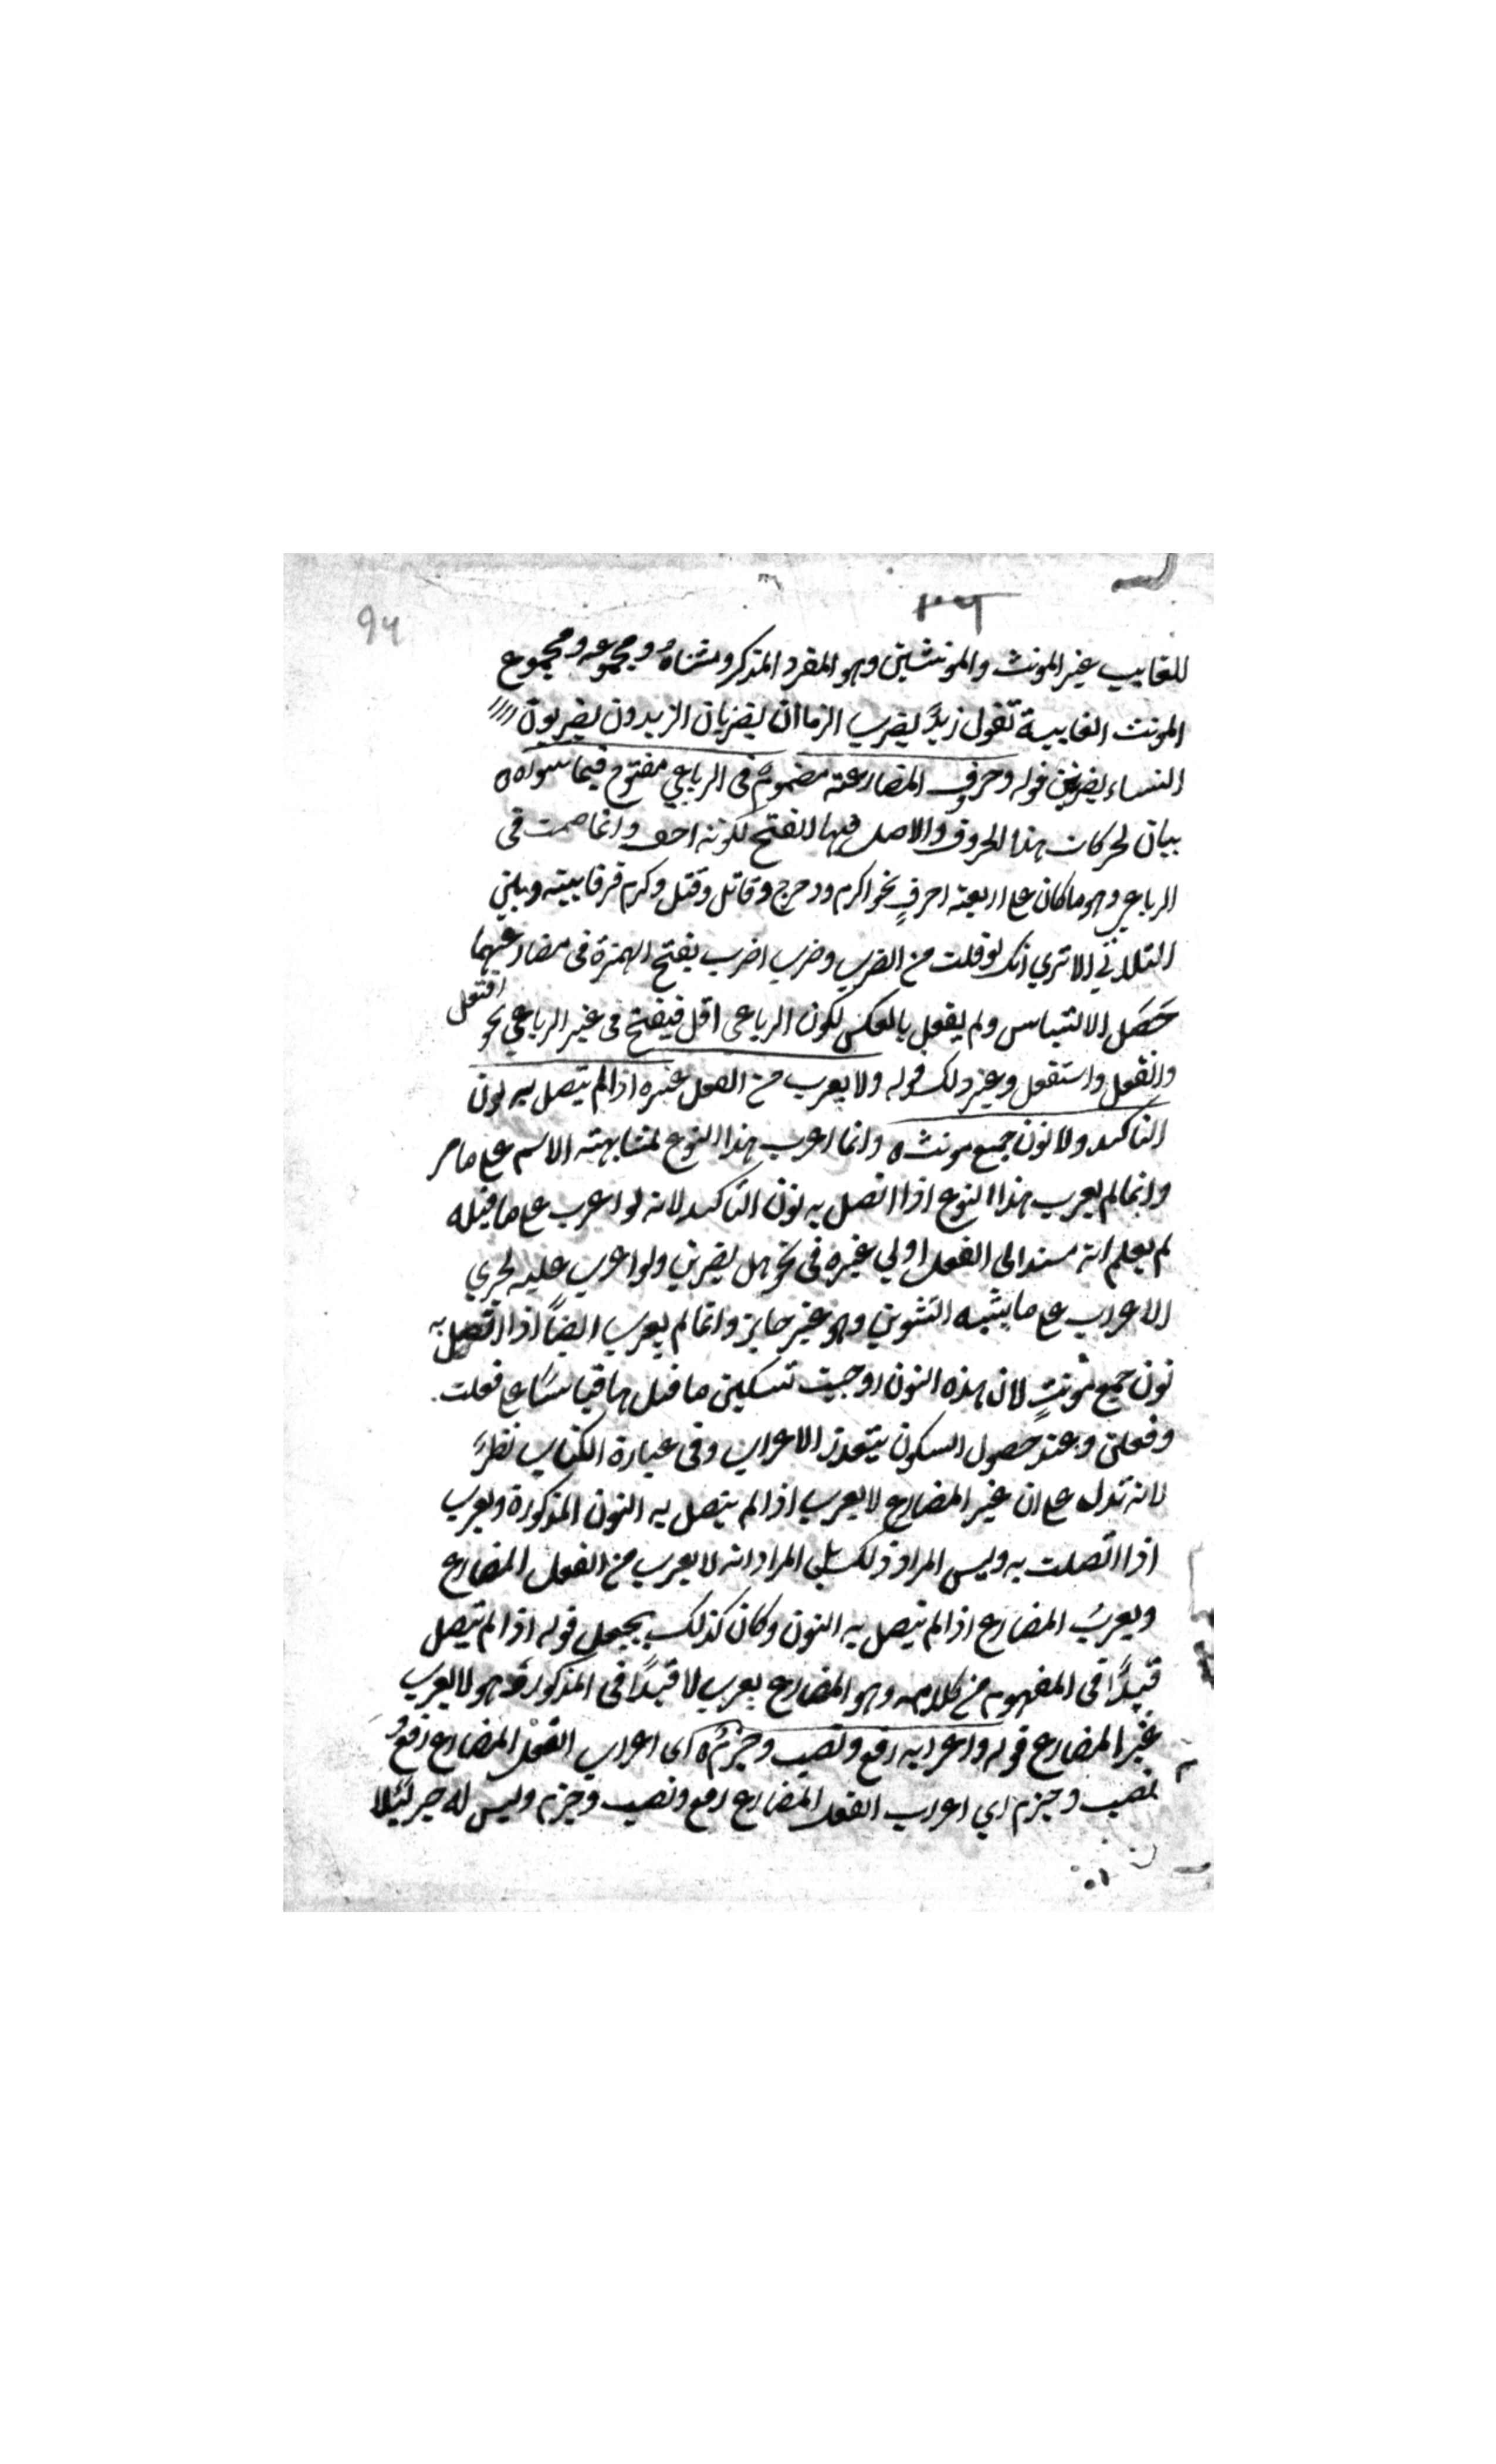 ١٠٦
٩٦
للغايب غير المونث والمونثتين وهو المفرد المذكر ومثناه ومجموعه ومجموع
المونث الغايبة تقول زيدٌ يضرب الزيدان يضربان الزيدون يضربون
النساء يضربن قوله وحرف المضارعة مضموم في الرباعي مفتوح فيما سواه
بيان لحركات هذا الحروف والاصل فيها الفتح لكونه اخف وانما ضمت في
الرباعي وهو ما كان على اربعة احرفٍ نحو اكرم ودحرج وقاتل وقتل وكرم فرقا بينه وبين
الثلاثي الا تري انك لو قلت من الضرب وضرب اضرب بفتح الهمزة في مضارعهما
حَصَل الالتباس ولم يفعل بالعكس لكون الرباعي اقل فيفتح في غير الرباعي نحو افتعل
وانفعل واستفعل وغير ذلك قوله ولا يعرب من الفعل غيره اذا لم يتصل به نون
التاكيد ولا نون جمع مونث وانما اعرب هذا النوع لمشابهته الاسم على ما مر
وانما لم يعرب هذا النوع اذا اتصل به نون التاكيد لانه لو اعرب على ما قبله
لم يعلم انه مسند الى الفعل او لي غيره في نحو هل يضربن ولو اعرب عليه لجري
الاعراب على ما يشبه التنوين وهو غير جايز وانما لم يعرب ايضاً اذا اتصل به
نون جمع مونثٍ لان هذه النون اوجبت تسكين ما قبلها قياسًا على فعلت
وفعلن وعند حصول السكون يتعذر الاعراب وفي عبارة الكتاب نظرٌ
لانه تدل على ان غير المضارع لا يعرب اذا لم يتصل به النون المذكورة ويعرب
اذا اتصلت به وليس المراد ذلك بل المراد انه لا يعرب من الفعل المضارع
ويعربُ المضارع اذا لم يتصل به النون وكان كذلك بجعل قوله اذا لم يتصل
قيدًا في المفهوم من كلامه وهو المضارع يعرب لا قيدًا في المذكور وهو لا يعرب
غير المضارع قوله واعرابه رفع ونصب وجزم اى اعراب الفعل المضارع رفعٌ و
نصب وجزم اي اعراب الفعل المضارع رفع ونصب وجزم وليس له جر لئلا